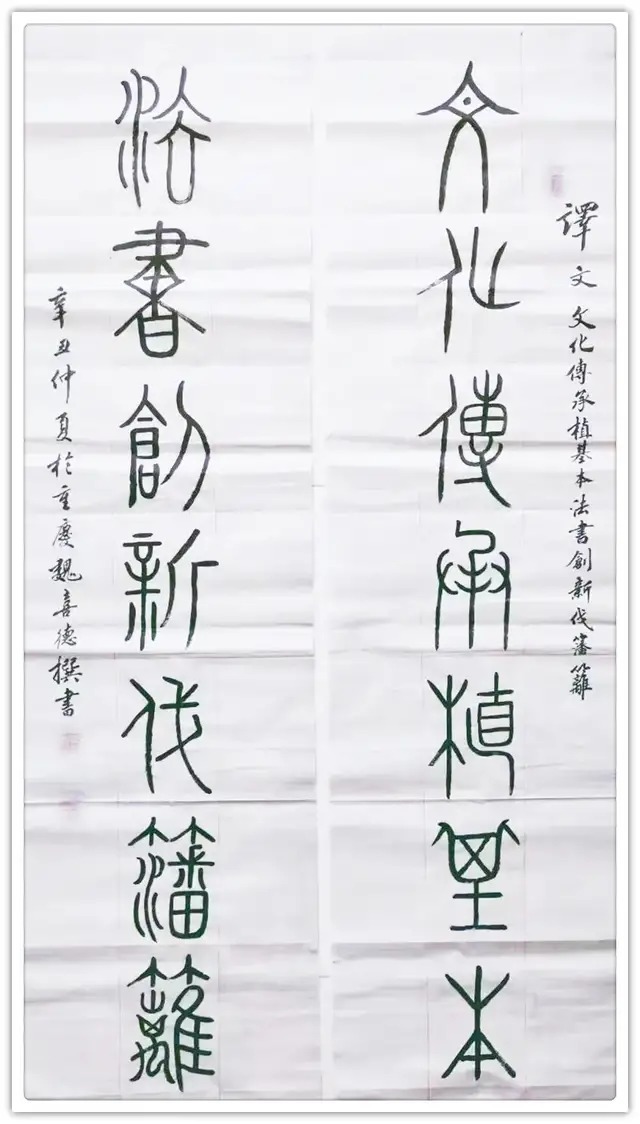 譯文 文化傳承植基本法書創新伐籓籬
文化傳承植基本
法書創新伐籓籬
辛丑仲夏於重慶魏喜德撰書